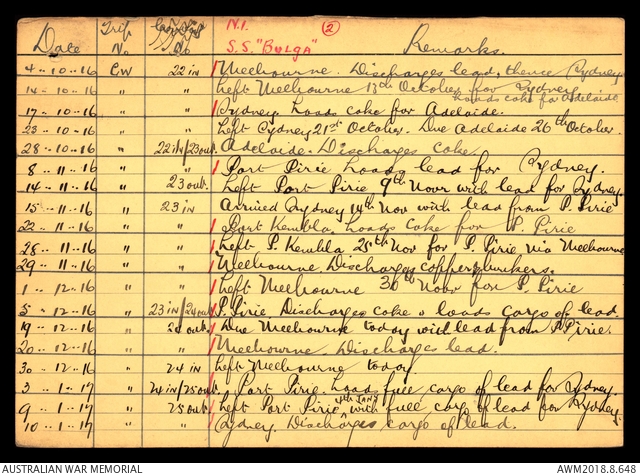 N.I. (2)
Date Trip No. No S.S. "BULGA" Remarks.
4..10..16 CW 22 in Melbourne. Discharges lead, thence Sydney
14..10..16 " " Left Melbourne 13th October for Sydney
loads coke for Adelaide
17..10..16 " " Sydney loads coke for Adelaide.
23..10..16 " " Left Sydney 21st October. Due Adelaide 26th October.
28..10..16 " 22 in/23 out Adelaide. Discharges coke
8..11..16 " " Port Pirie loads lead for Sydney.
14..11..16 " 23 out. Left Port Pirie 9th Novr with lead for Sydney.
15..11..16 " 23 in Arrived Sydney 14th Nov with lead from P. Pirie
22..11..16 " " Port Kembla. Loads coke for P. Pirie
28..11..16 " " Left P. Kembla 25th Nov for P. Pirie via Melbourne
29..11..16 " " Melbourne. Discharges copper, bunkers.
1..12..16 " " Left Melbourne 30th Novr for P. Pirie
5..12..16 " 23 in/24 out P. Pirie. Discharges coke & loads cargo of lead.
19..12..16 " 24 out. Due Melbourne today with lead from P. Pirie.
20..12..16 " " Melbourne. Discharges lead.
30..12..16 " 24 in Left Melbourne today.
3..1..17 " 24 in/25 out. Port Pirie. Loads full cargo of lead for Sydney.
9..1..17 " 25 out Left Port Pirie 4TH JANY with full cargo of lead for Sydney.
10..1..17 " " Sydney. Discharges cargo of lead.
AUSTRALIAN WAR MEMORIAL AWM2018.8.648